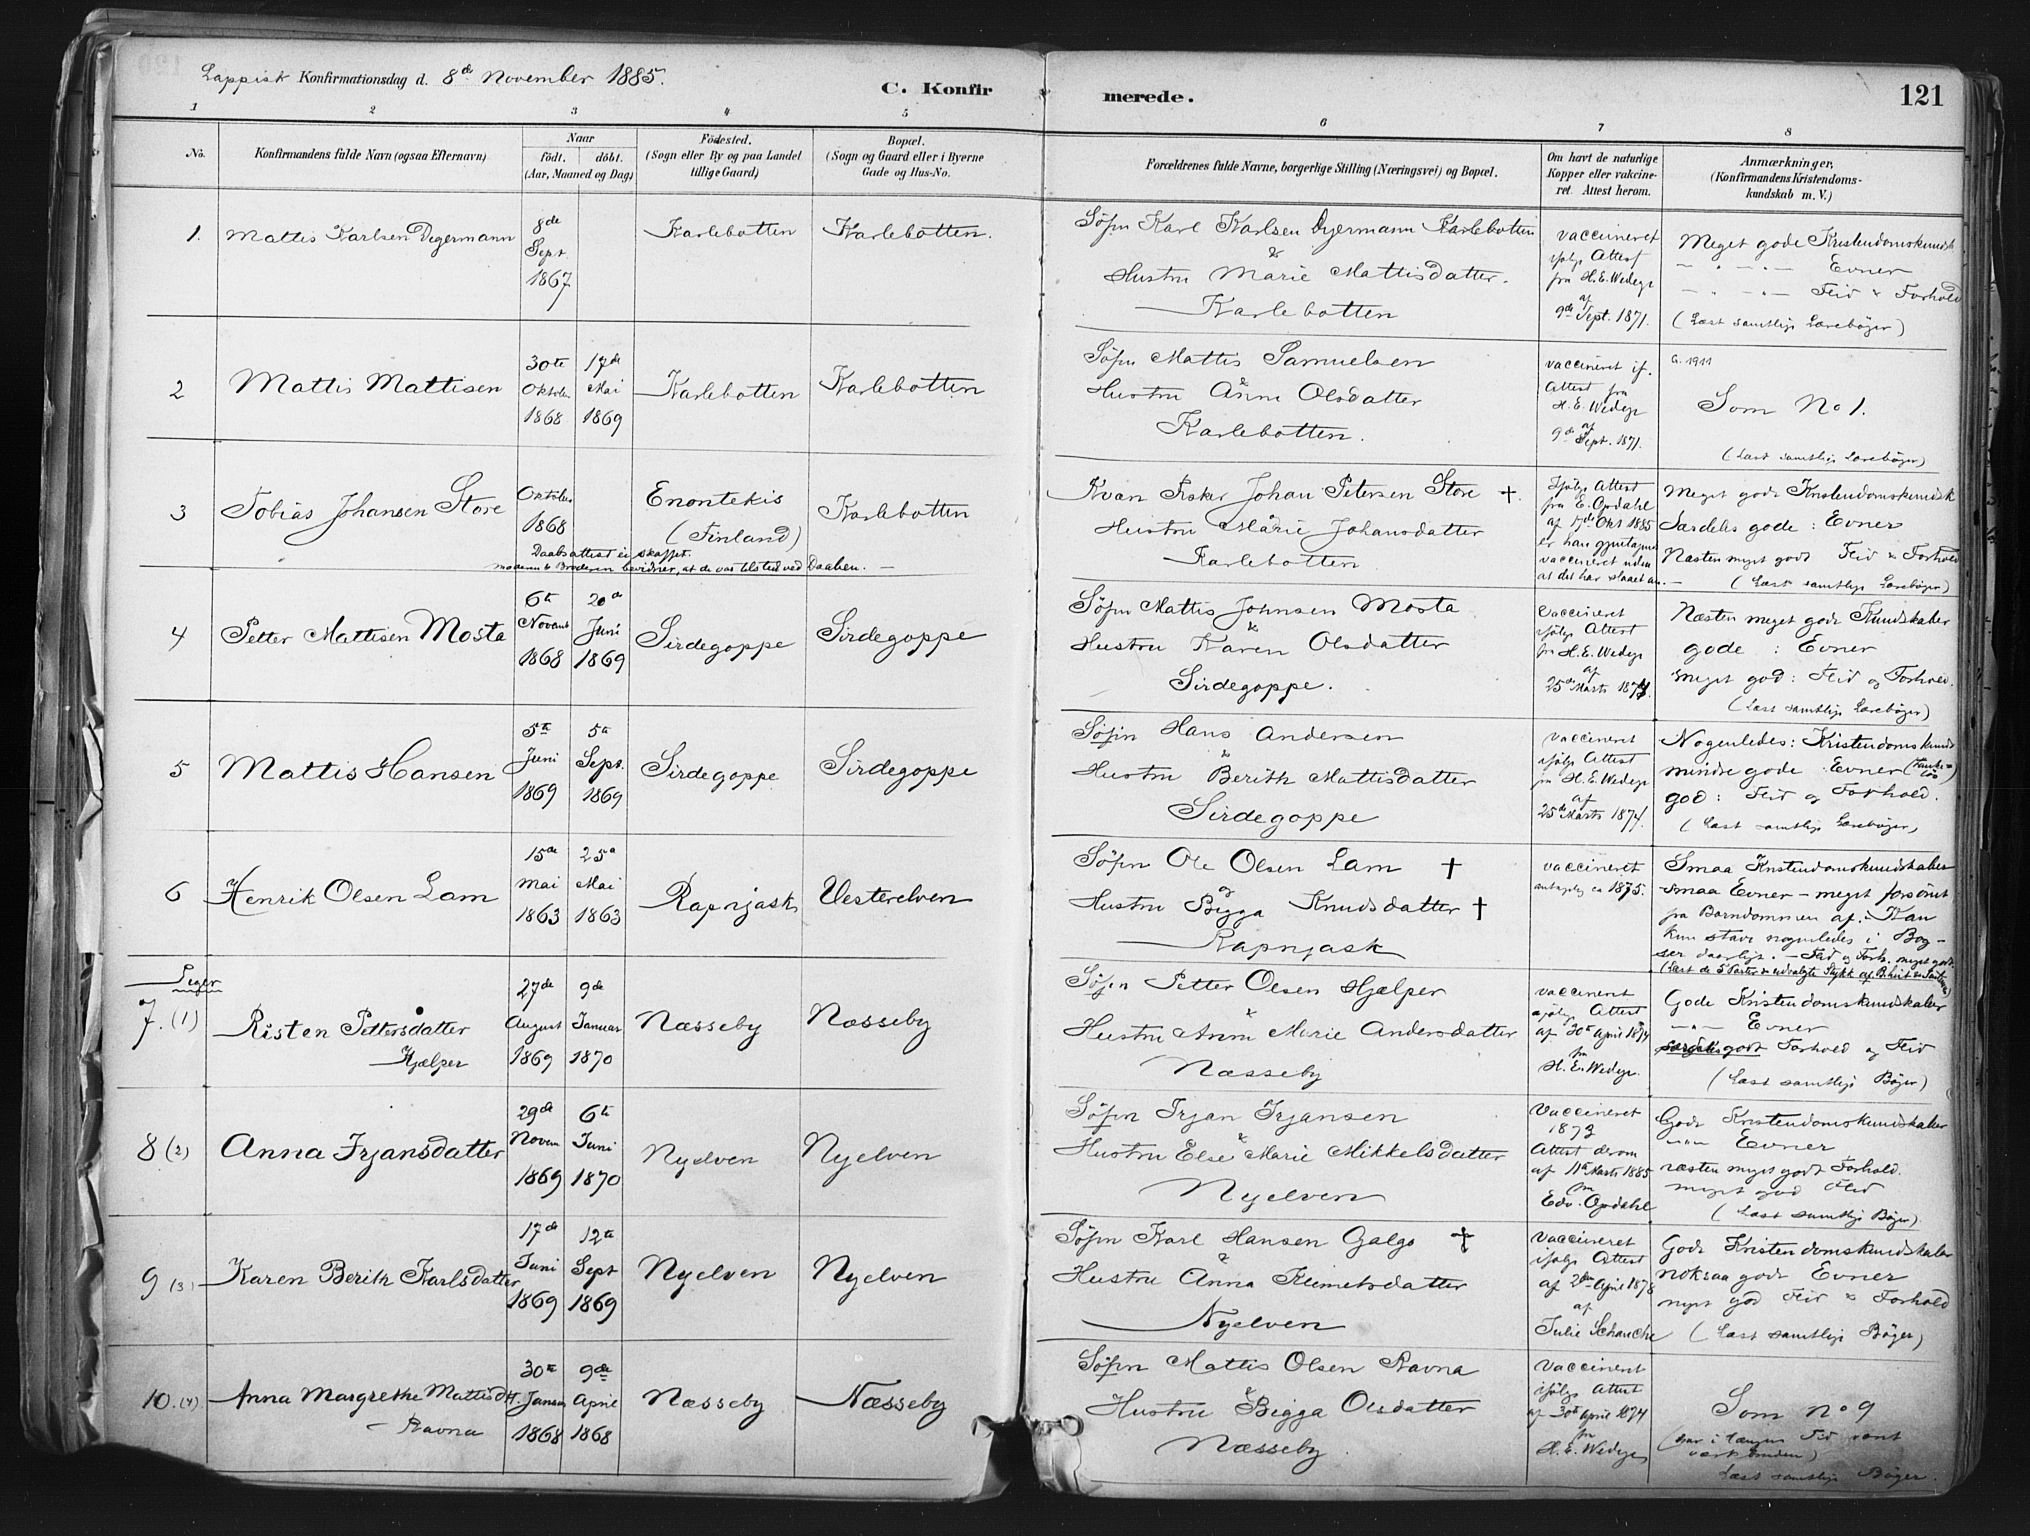 Lappisk Konfirmationsdag d. 8de November 1885.
C. Konfirmerede.
121
1 2 3 4 5 6 7 8
No.
Konfirmandens fulde Navn (ogsaa Efternavn)
Naar
födt. döbt.
(Aar, Maaned og Dag)
Födested.
(Sogn eller By og paa Landet
tillige Gaard)
Bopæl.
(Sogn og Gaard eller i Byerne
Gade og Hus-No.
Forældrenes fulde Navne, borgerlige Stilling (Næringsvei) og Bopæl.
Om havt de naturlige
Kopper eller vakcine-
ret. Attest herom.
Anmærkninger,
(Konfirmandens Kristendoms-
kundskab m. V.)
1. Mattis Karlsen Degermann
8de
Sept.
1867
Karlebotten
Karlebotten.
Søfin Karl Karlsen Dgermann Karlebotten
&
Hustru Marie Mattisdatter.
Karlebotten
vaccineret
ifølge Attest
fra H. E. Wedege
af
9de Sept. 1871.
Meget gode Kristendomskundsk
Evner
Flid & Forhold
(Læst samtlige Lærebøger)
2 Mattis Mattisen
30te
Oktober
1868
17de
Mai
1869
Karlebotten
Karlebotten
Søfin Mattis Samuelsen
&
Hustru Anne Olsdatter
Karlebotten.
vaccineret if.
Attest fra
H. E. Wedege
af
9de Sept. 1871.
G. 1911
Som No 1.
(Læst samtlige Lærebøger)
3 Tobias Johansen Store
Oktober
1868
Enontekis
(Finland)
Karlebotten
Daabsattest ei skaffet.
moderen & Broderen bevidner, at de var tilsted ved Daaben.
Kvæn Fisker Johan Petersen Store †.
&
Hustru Marie Johansdatter
Karlebotten
Ifølge Attest
fra E. Opdahl
af 17de Okt 1885
er han gjentagne
vaccineret uden
at det har slaaet an.
Meget gode Kristendomskundsk
Særdeles gode : Evner
Næsten meget godt Flid & Forhold
(Læst samtlige Lærebøger)
4 Petter Mattisen Mosta
6te
Novemb
1868
20de
Juni
1869
Sirdegoppe
Sirdegoppe
Søfin Mattis Johnsen Mosta
&
Hustru Karen Olsdatter
Sirdegoppe.
Vaccineret
ifølge Attest
fra H. E. Wedege
af
25de Marts 1874
Næsten meget gode Kundskaber
gode : Evner
meget god : Flid og Forhold.
(Læst samtlige Lærebøger)
5 Mattis Hansen
5te
Juni
1869
5te
Sept.
1869
Sirdegoppe
Sirdegoppe
Søfin Hans Andersen
&
Hustru Berith Mattisdatter
Sirdegoppe
vaccineret
ifølge Attest
fra H. E. Wedege
af
25de Marts 1874.
Nogenledes: Kristendomskunds
mindre gode Evner (Tanke=
løs)
god : Flid og Forhold.
(Læst samtlige Lærebøger)
6 Henrik Olsen Lam
15de
Mai
1863
25de
Mai
1863
Rapnjask
Vesterelven
Søfin Ole Olsen Lam †
og
Hustru Bigga Knudsdatter †
Rapnjask
vaccineret
antagelig ca 1875.
Smaa Kristendomskundskaber
smaa Evner - meget forsømt
fra Barndommen af. Kan
kun stave nogenledes i Bog-
ser daarligt. - Flid og Forh. meget godt
Piger
7. (1) Risten Pettersdatter
Hjælper
27de
August
1869
9de
Januar
1870
Næsseby
Næsseby
Søfin Petter Olsen Hjælper
&
Hustru Anne Marie Andersdatter
Næsseby
vaccineret
ifølge Attest
af 30te April 1874
fra
H. E. Wedege.
Gode Kristendomskundskaber
Evner
særdeles godt Forhold og Flid
(Læst samtlige Bøger)
8 (2) Anna Irjansdatter
29de
Novem
1869
6te
Juni
1870
Nyelven
Nyelven
Søfin Irjan Irjansen
&
Hustru Else Marie Mikkelsdatter
Nyelven
Vaccineret
1873
Attest derom
af 11te Marts 1885
fra
Edv. Opdahl
Gode Kristendomskundskaber
Evner
næsten meget godt Forhold.
meget god Flid
(Læst samtlige Bøger)
9 (3) Karen Berith Karlsdatter
17de
Juni
1869
12te
Sept
1869
Nyelven
Nyelven
Søfin Karl Hansen Galgo †
&
Hustru Anna Klemetsdatter
Nyelven
Vaccineret
ifølge Attest
af 2den April 1878
af
Julie Schanche
Gode Kristendomskundskaber
noksaa gode Evner
meget god Flid & Forhold
(Læst samtlige Bøger)
10. (4) Anna Margrethe Mattisdt.
Ravna
30te
Januar
1868
9de
April
1868
Næsseby
Næsseby
Søfin Mattis Olsen Ravna
&
Hustru Bigga Olsdatter
Næsseby.
Vaccineret
ifølge Attest
af 30te April 1874
fra
H. E. Wedege
Som No 9
(har i længere Tid været
)
Læst samtlige Bøger.